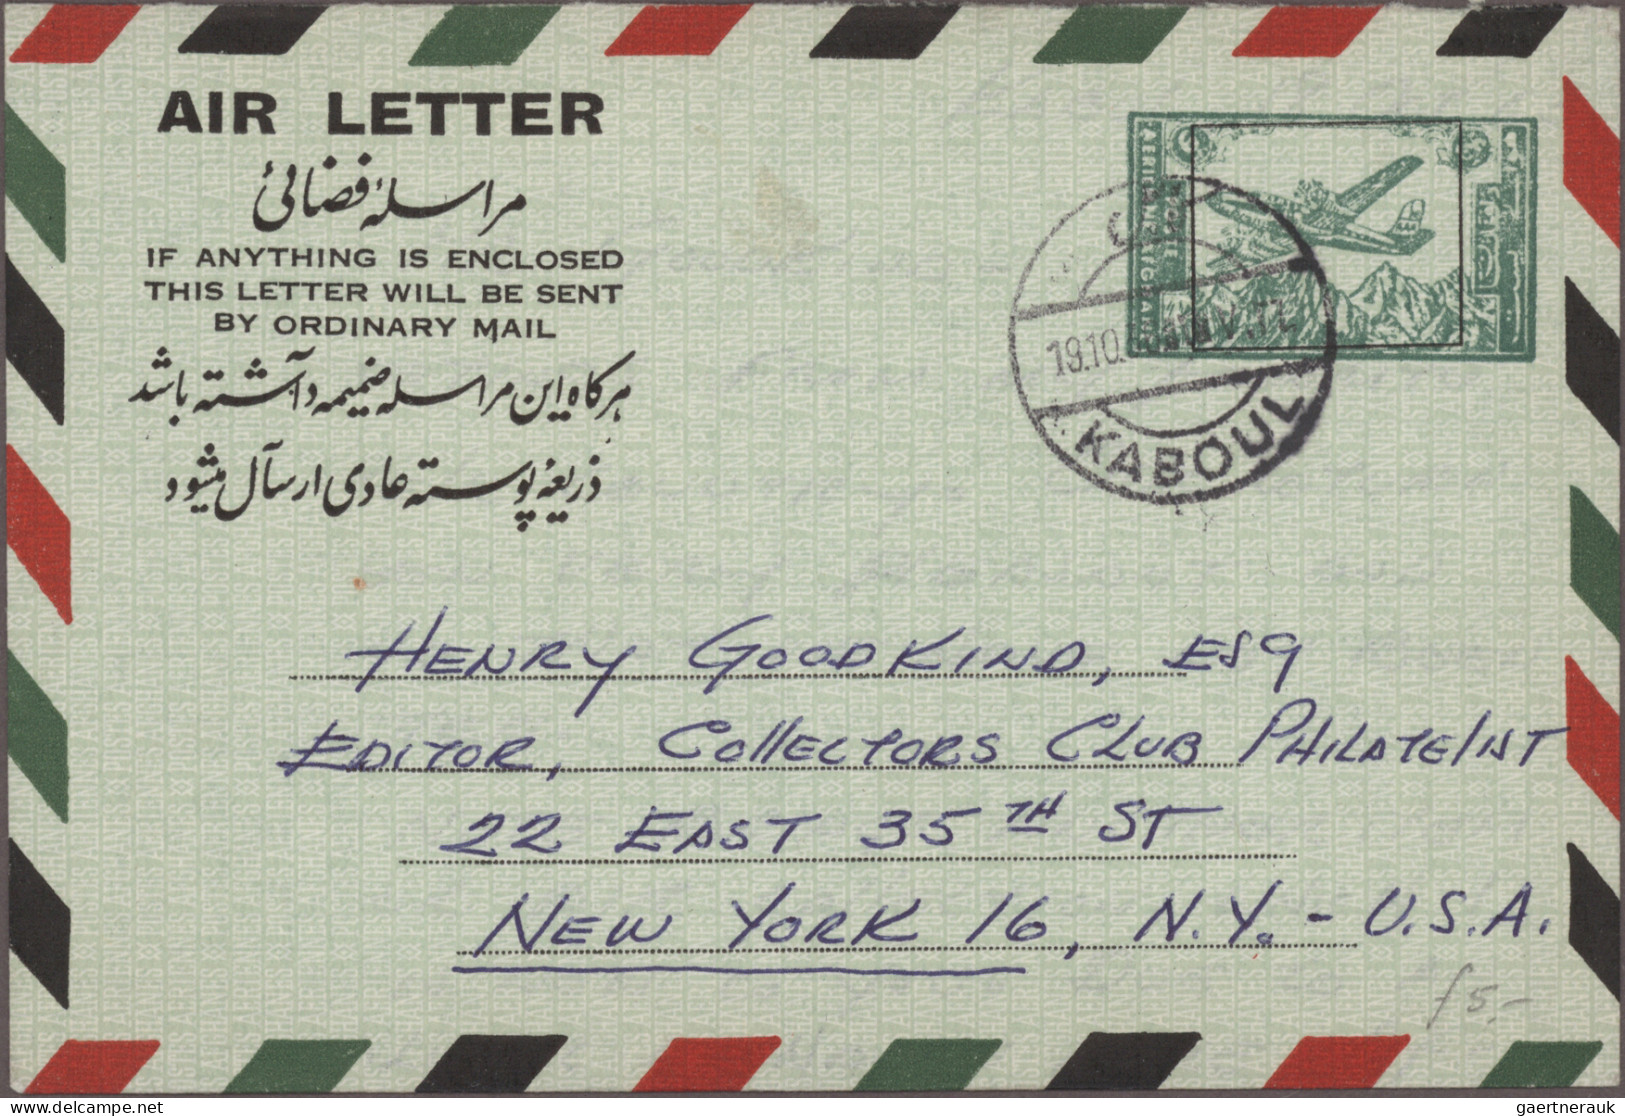 AIR LETTER
مراسلهٔ فضائی
IF ANYTHING IS ENCLOSED
THIS LETTER WILL BE SENT
BY ORDINARY MAIL
هرگاه این مراسله ضمیمه داشته باشد
ذریعهٔ پوسته عادی ارسال میشود
19.10.
KABOUL
HENRY GOODKIND, ESQ
EDITOR, COLLECTORS CLUB PHILATELIST
22 EAST 35TH ST
NEW YORK 16, N.Y. - U.S.A.
f 5,-
gaertnerauk